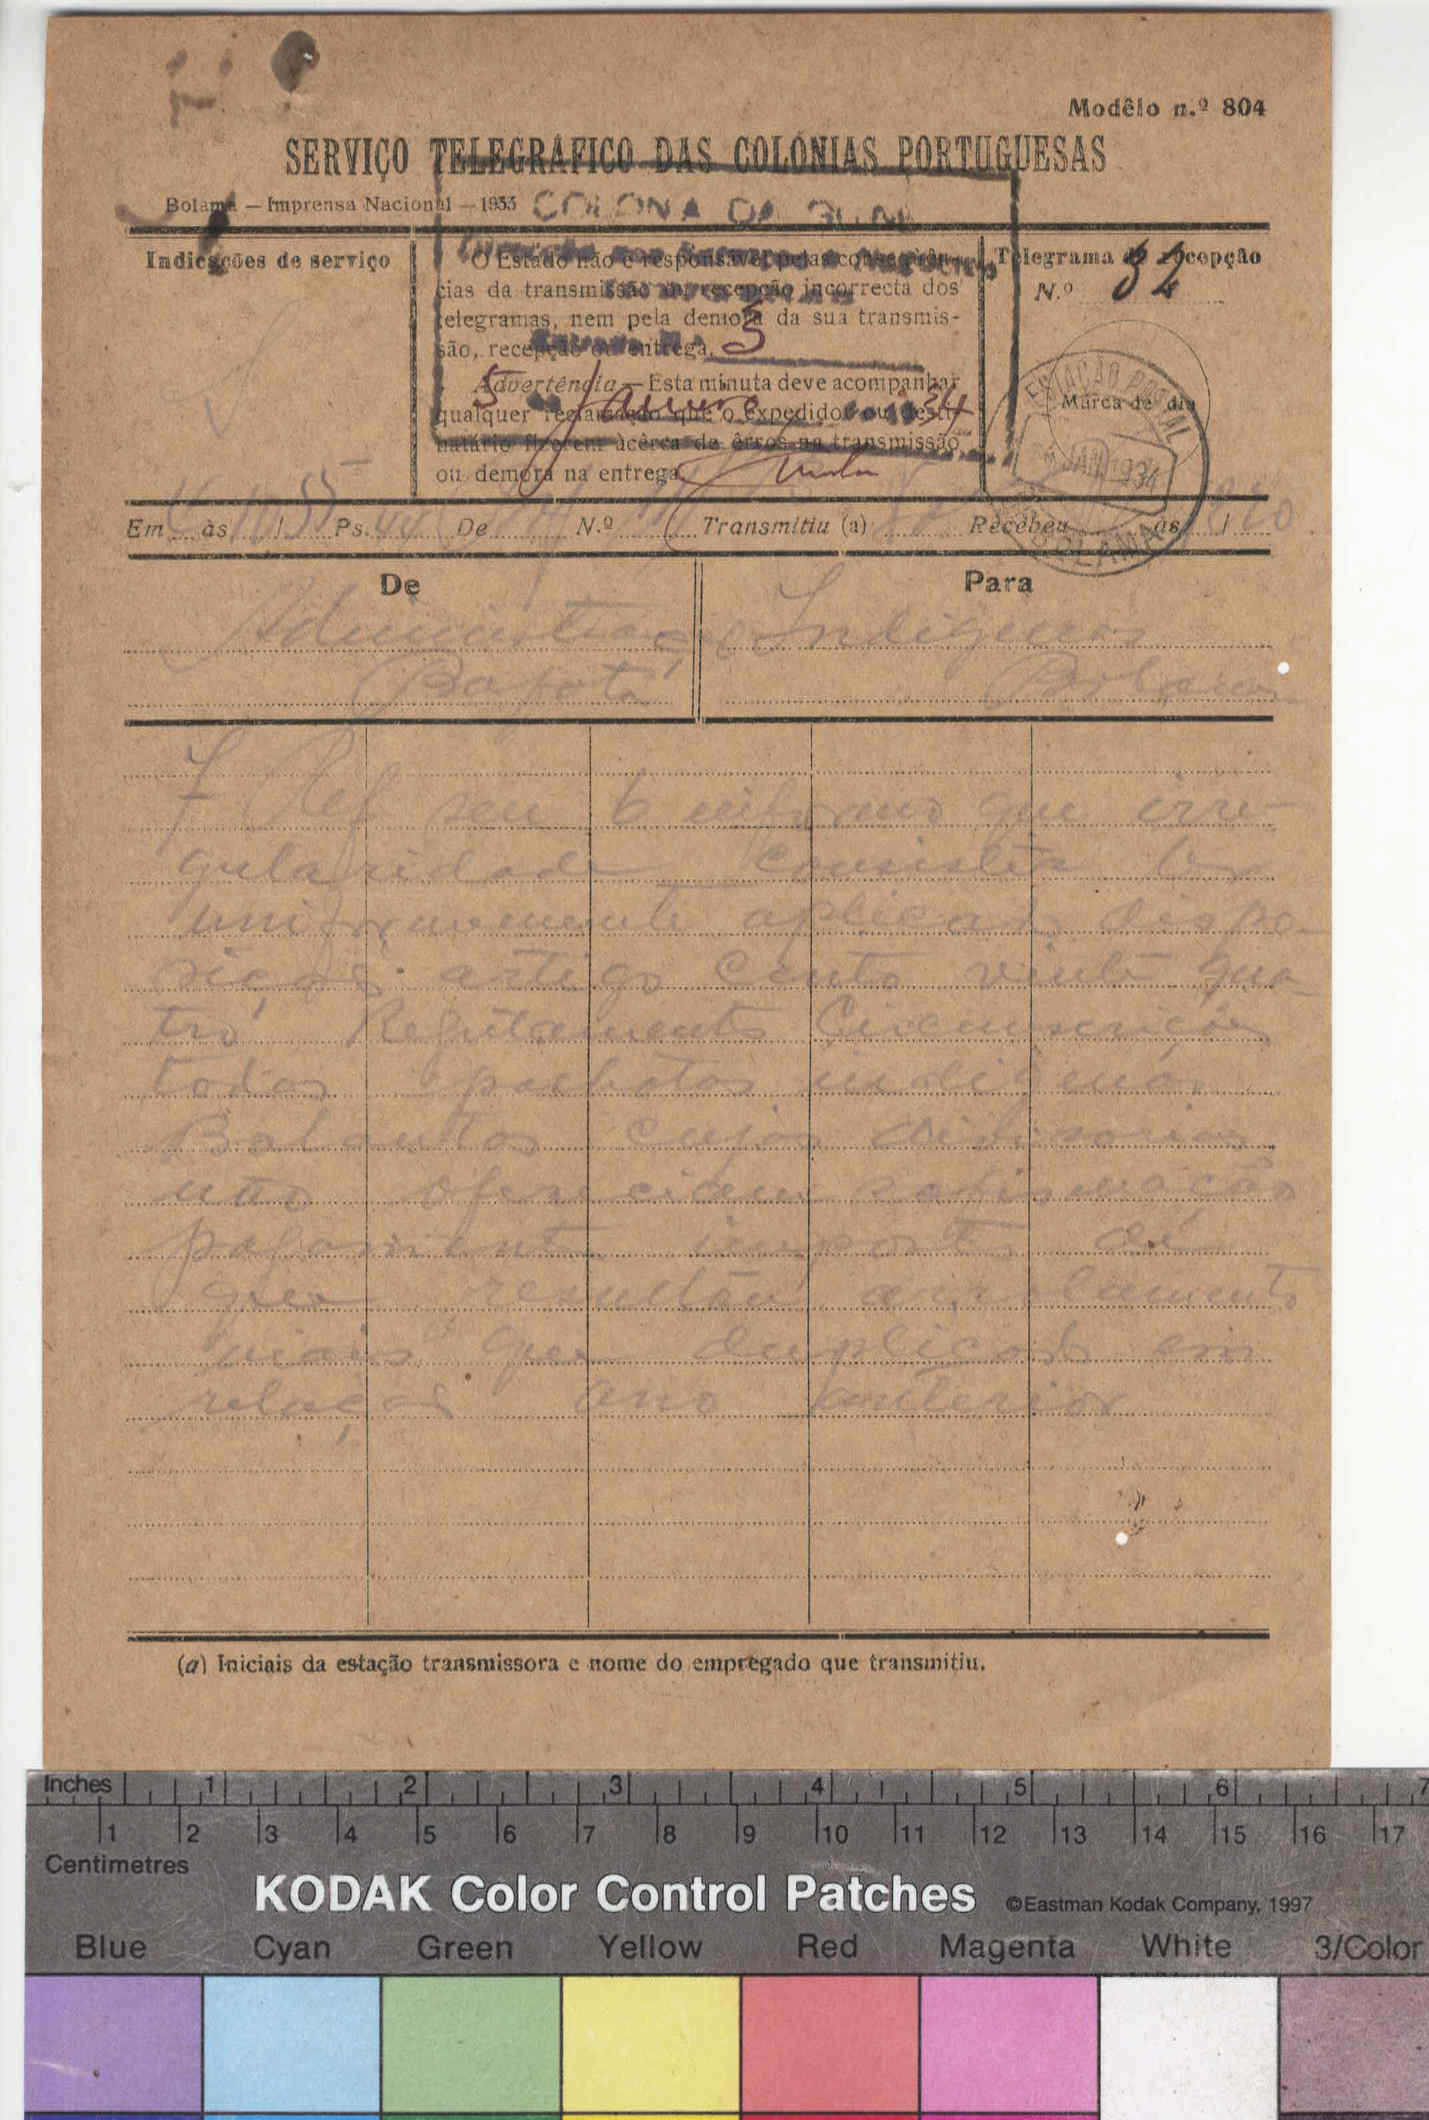 Modêlo n.º 804
SERVIÇO TELEGRÁFICO DAS COLÓNIAS PORTUGUESAS
Bolama — Imprensa Nacional — 1933
COLONIA DA GUINÉ
Indicações de serviço
O Estado não é responsável pelas consequên-
cias da transmissão ou recepção incorrecta dos
telegramas, nem pela demora da sua transmis-
são, recepção ou entrega.
3
Advertência — Esta minuta deve acompanhar
qualquer reclamação que o expedidor ou desti-
natário fizerem àcêrca de êrros na transmissão
ou demora na entrega.
5 Janeiro 34
Telegrama de recepção
N.º 32
Marca de dia
ESTAÇÃO POSTAL
JAN 1934
BOLAMA
Em às Ps. De N.º Transmitiu (a) Recebeu às
De
Para
Administração
Indigenas
Bafatá
Bolama
7 Ref seu 6 informo que irre-
gularidade consistia
uniformemente aplicar dispo-
sição artigo cento vinte qua-
tro Regulamento Circunscrições
todas palhotas indigenas
Balantas cujas
não ofereciam
pagamento imposto de
que resultou arrolamento
mais que duplicado em
relação ano anterior
(a) Iniciais da estação transmissora e nome do empregado que transmitiu.
Inches 1 2 3 4 5 6 7
1 2 3 4 5 6 7 8 9 10 11 12 13 14 15 16 17
Centimetres
KODAK Color Control Patches ©Eastman Kodak Company, 1997
Blue Cyan Green Yellow Red Magenta White 3/Color